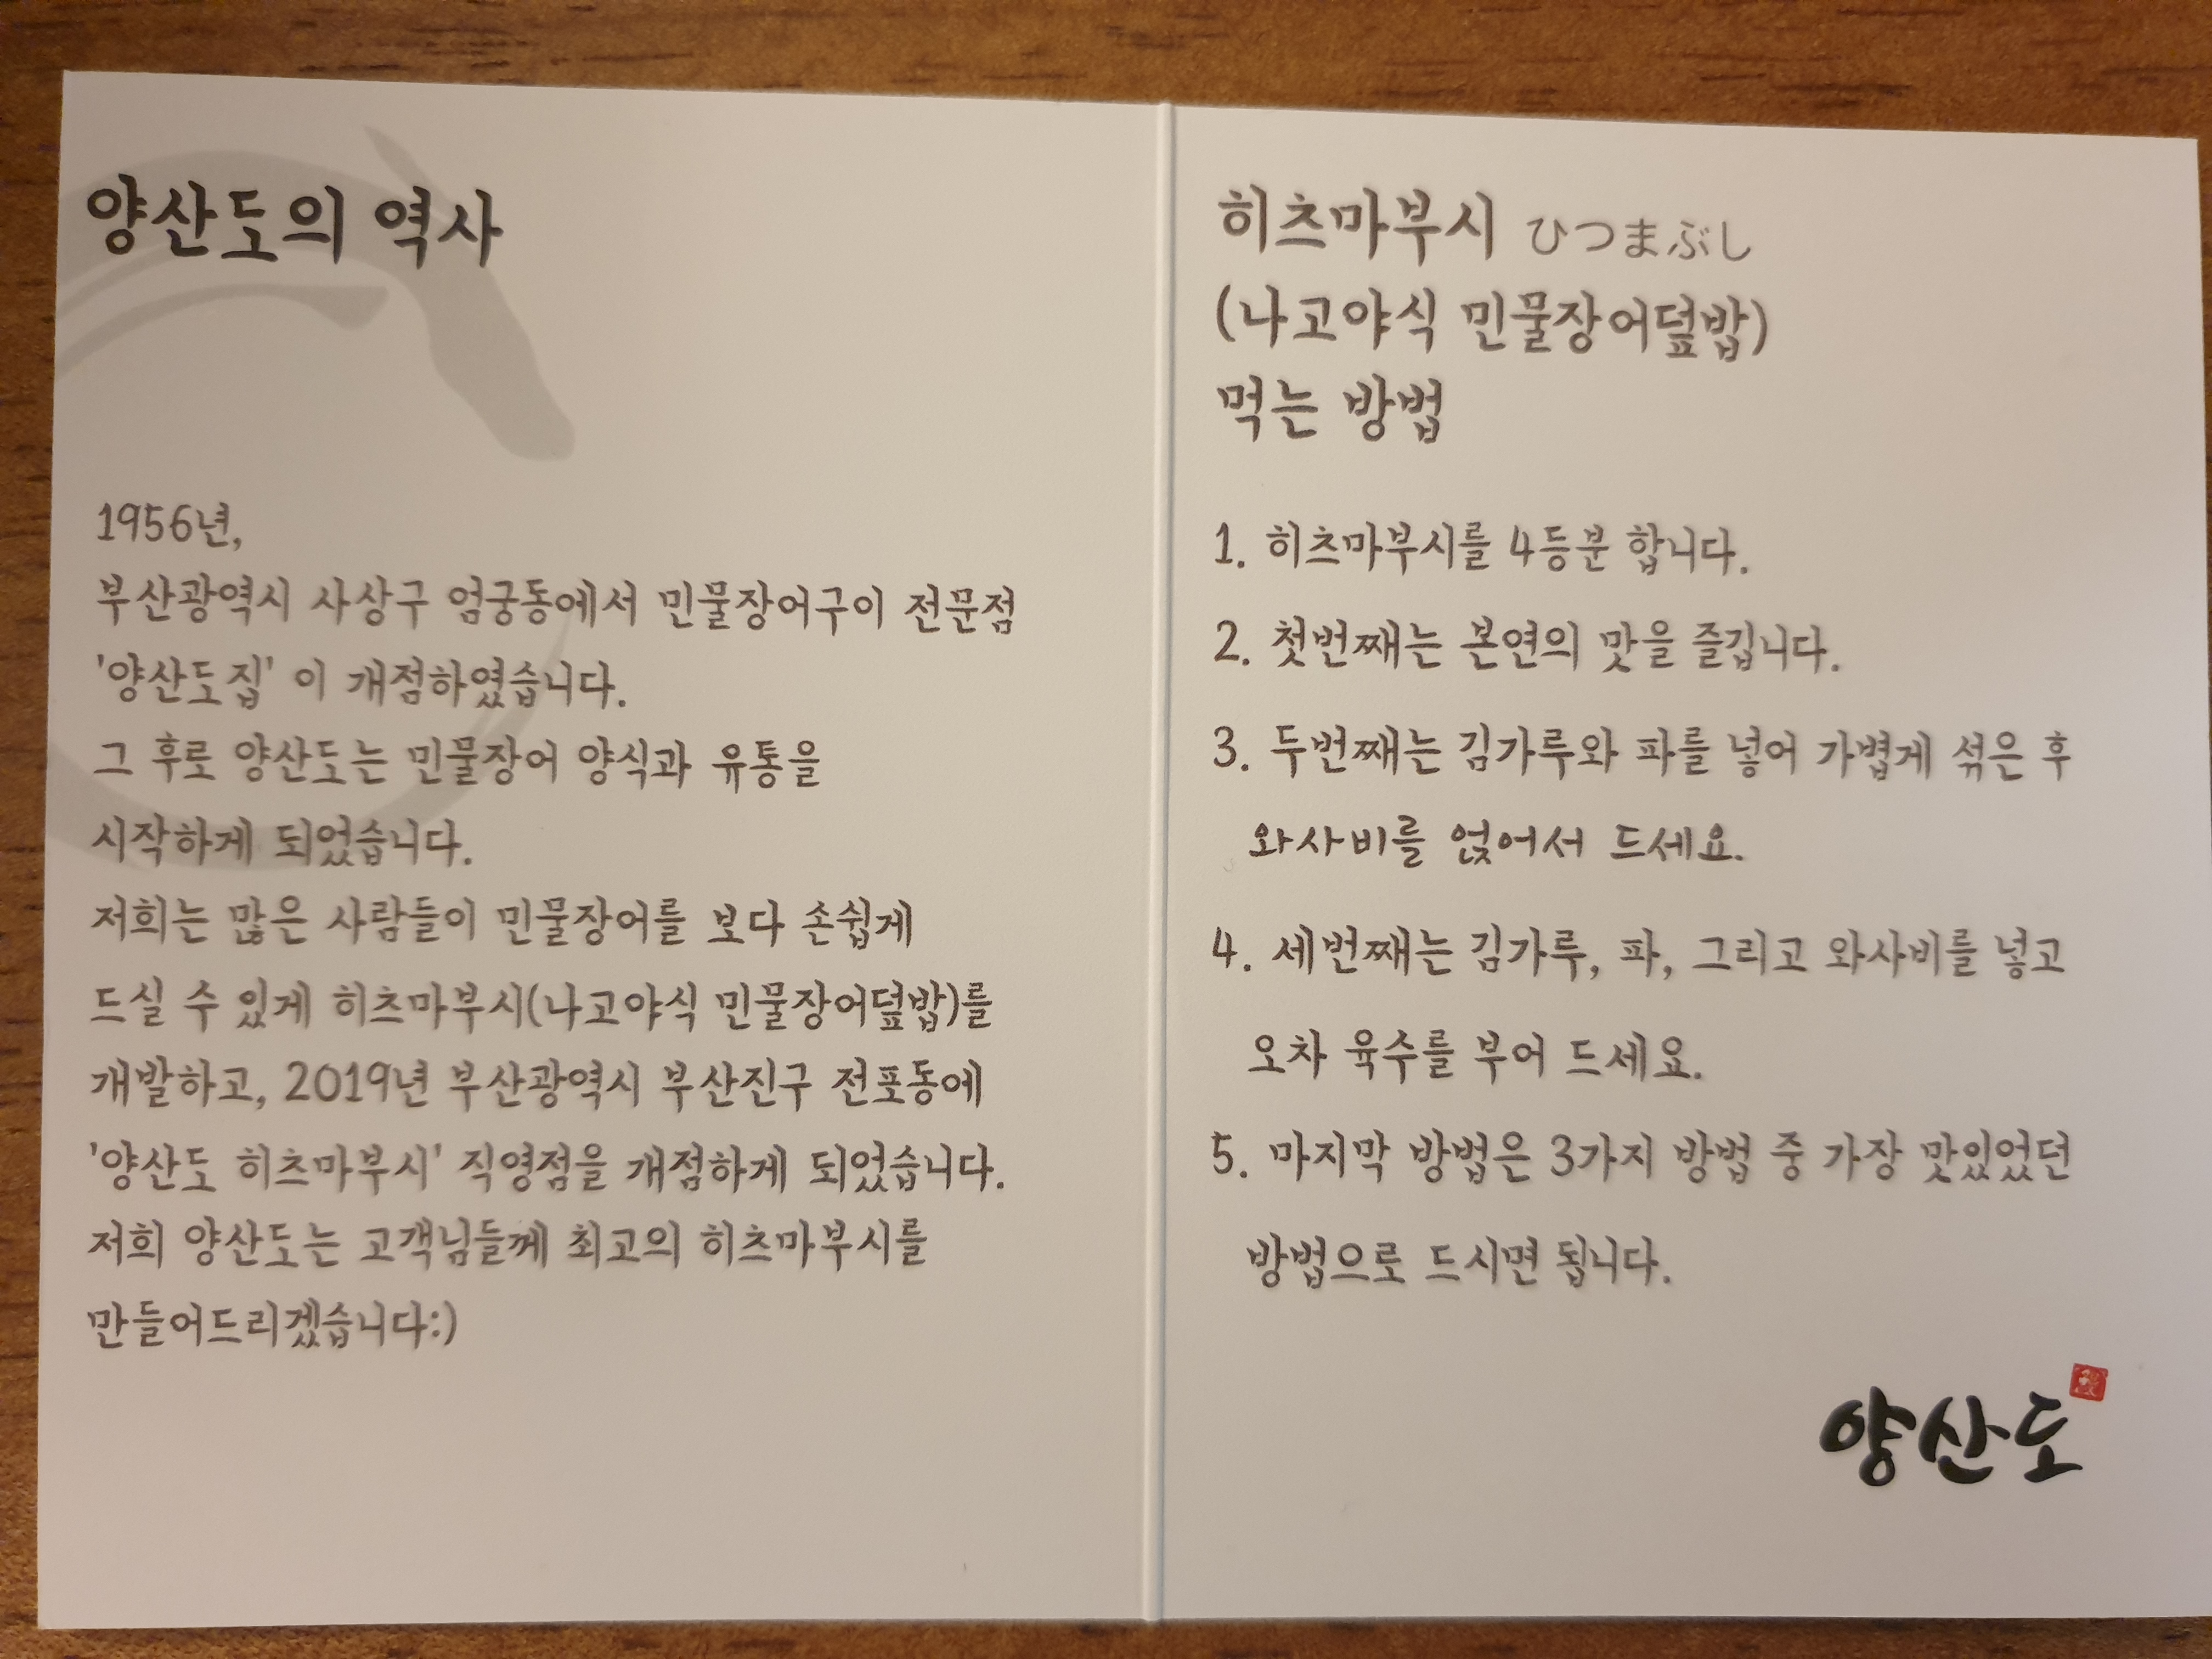 양산도의 역사
1956년,
부산광역시 사상구 엄궁동에서 민물장어구이 전문점
'양산도집' 이 개점하였습니다.
그 후로 양산도는 민물장어 양식과 유통을
시작하게 되었습니다.
저희는 많은 사람들이 민물장어를 보다 손쉽게
드실 수 있게 히츠마부시(나고야식 민물장어덮밥)를
개발하고, 2019년 부산광역시 부산진구 전포동에
'양산도 히츠마부시' 직영점을 개점하게 되었습니다.
저희 양산도는 고객님들께 최고의 히츠마부시를
만들어드리겠습니다:)
히츠마부시 ひつまぶし
(나고야식 민물장어덮밥)
먹는 방법
1. 히츠마부시를 4등분 합니다.
2. 첫번째는 본연의 맛을 즐깁니다.
3. 두번째는 김가루와 파를 넣어 가볍게 섞은 후
와사비를 얹어서 드세요.
4. 세번째는 김가루, 파, 그리고 와사비를 넣고
오차 육수를 부어 드세요.
5. 마지막 방법은 3가지 방법 중 가장 맛있었던
방법으로 드시면 됩니다.
양산도